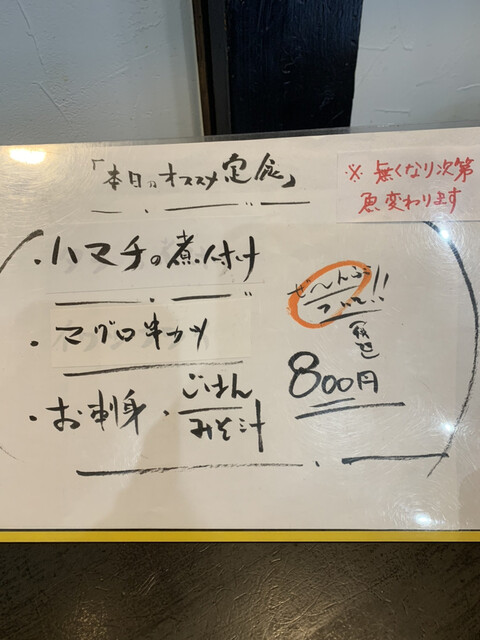 「本日のオススメ定食」
※ 無くなり次第
魚変わります
・ハマチの煮付け
・マグロ半カツ
・お刺身・ごはん
みそ汁
ぜ〜んぶ
ついて!!
税込
800円